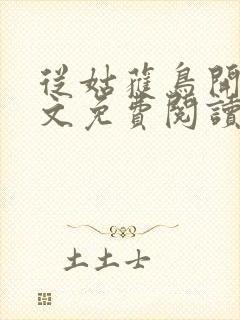 從姑蘿鳥開
文免費閱讀
土土士